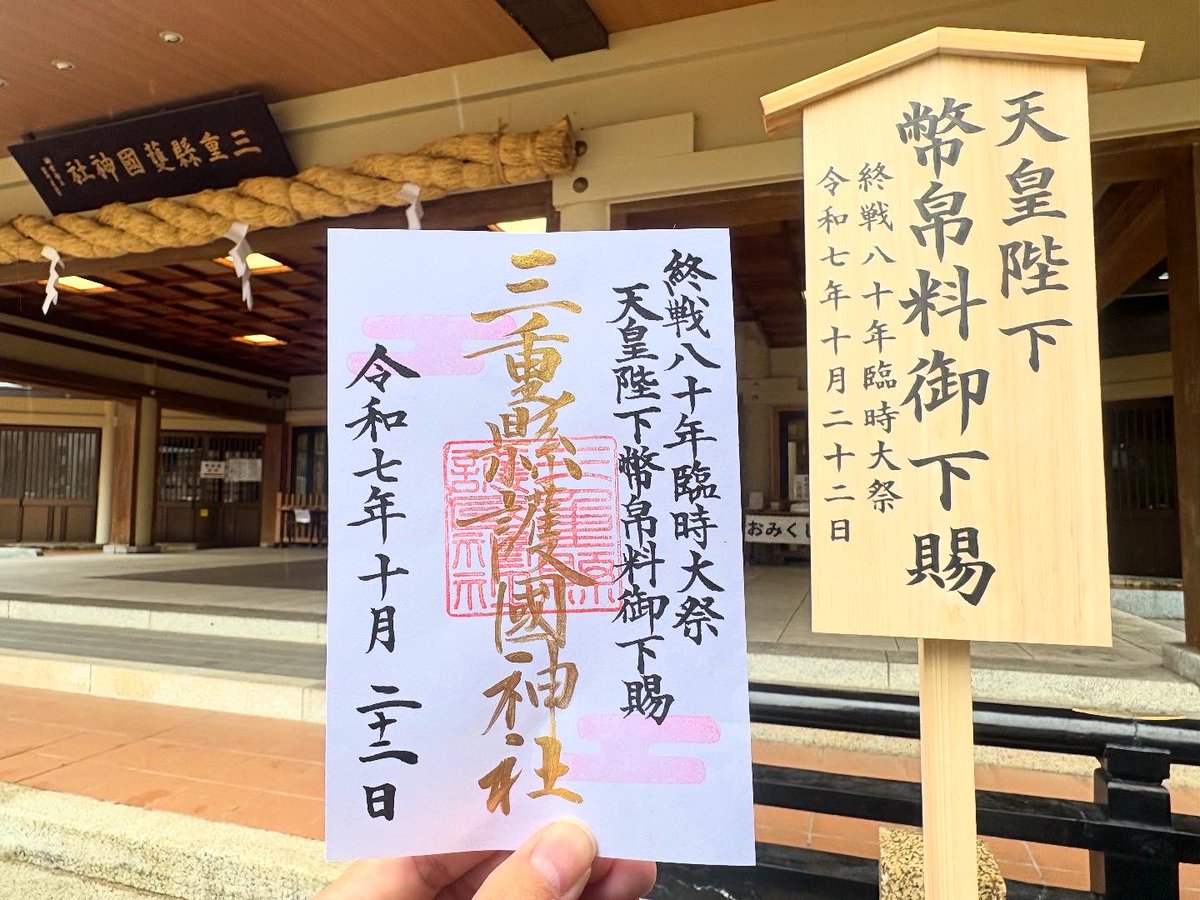 三重縣護國神社
終戦八十年臨時大祭
天皇陛下幣帛料御下賜
三重縣護國神社
令和七年十月二十二日
天皇陛下
幣帛料御下賜
終戦八十年臨時大祭
令和七年十月二十二日
おみく